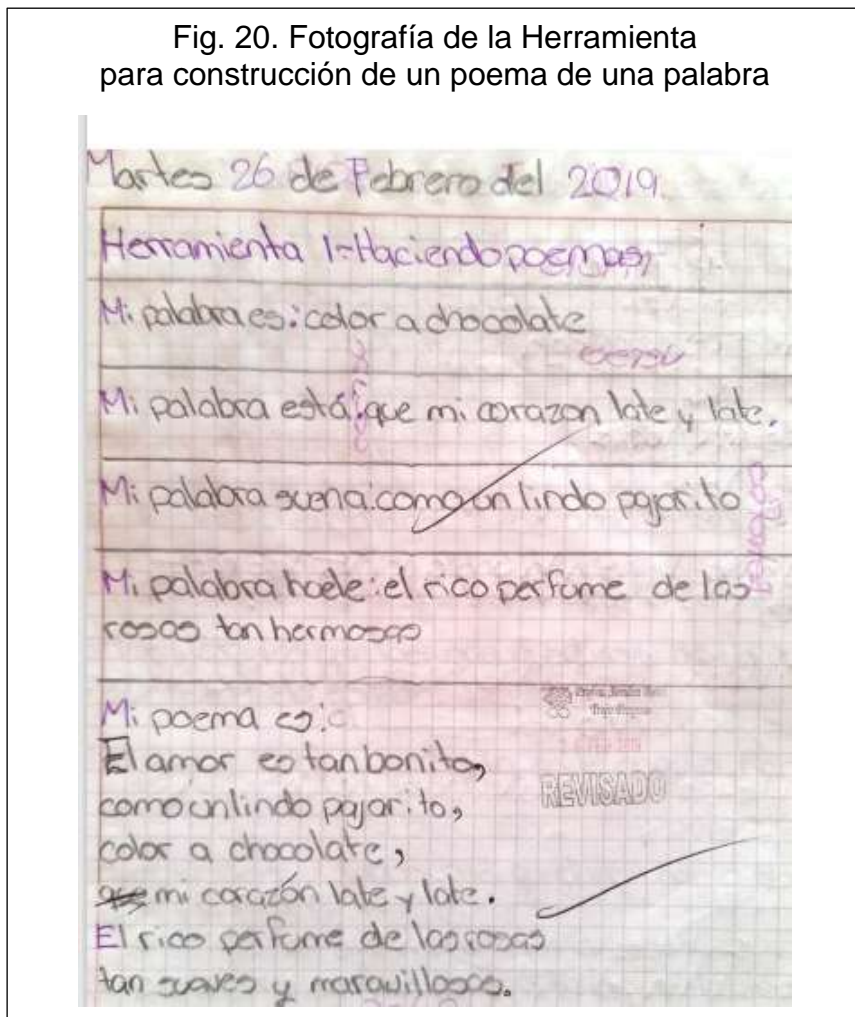 Fig. 20. Fotografía de la Herramienta
para construcción de un poema de una palabra
Martes 26 de Febrero del 2019.
Herramienta 1-Haciendo poemas,
Mi palabra es: color a chocolate
Mi palabra está: que mi corazon late y late.
Mi palabra suena: como un lindo pajarito
Mi palabra huele: el rico perfume de las
rosas tan hermosas
Mi poema es:
El amor es tan bonito,
como un lindo pajarito,
color a chocolate,
mi corazón late y late.
El rico perfume de las rosas
tan suaves y maravillosas.
REVISADO